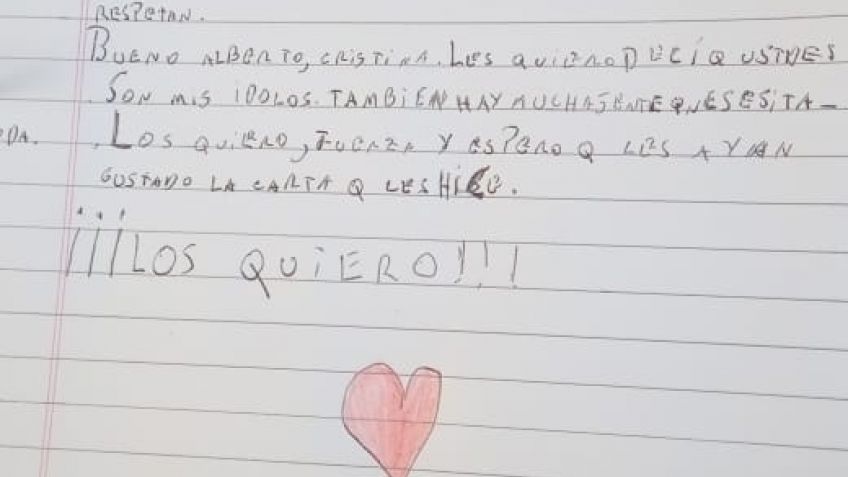 RESPETAN.
BUENO ALBERTO, CRISTINA. LES QUIERO DECÍ Q USTDES
SON MIS IDOLOS. TAMBIEN HAY MUCHA JENTE Q NESESITA-
DA. LOS QUIERO, FUERZA Y ESPERO Q LES AYAN
GUSTADO LA CARTA Q LES HICE.
¡¡¡LOS QUIERO!!!